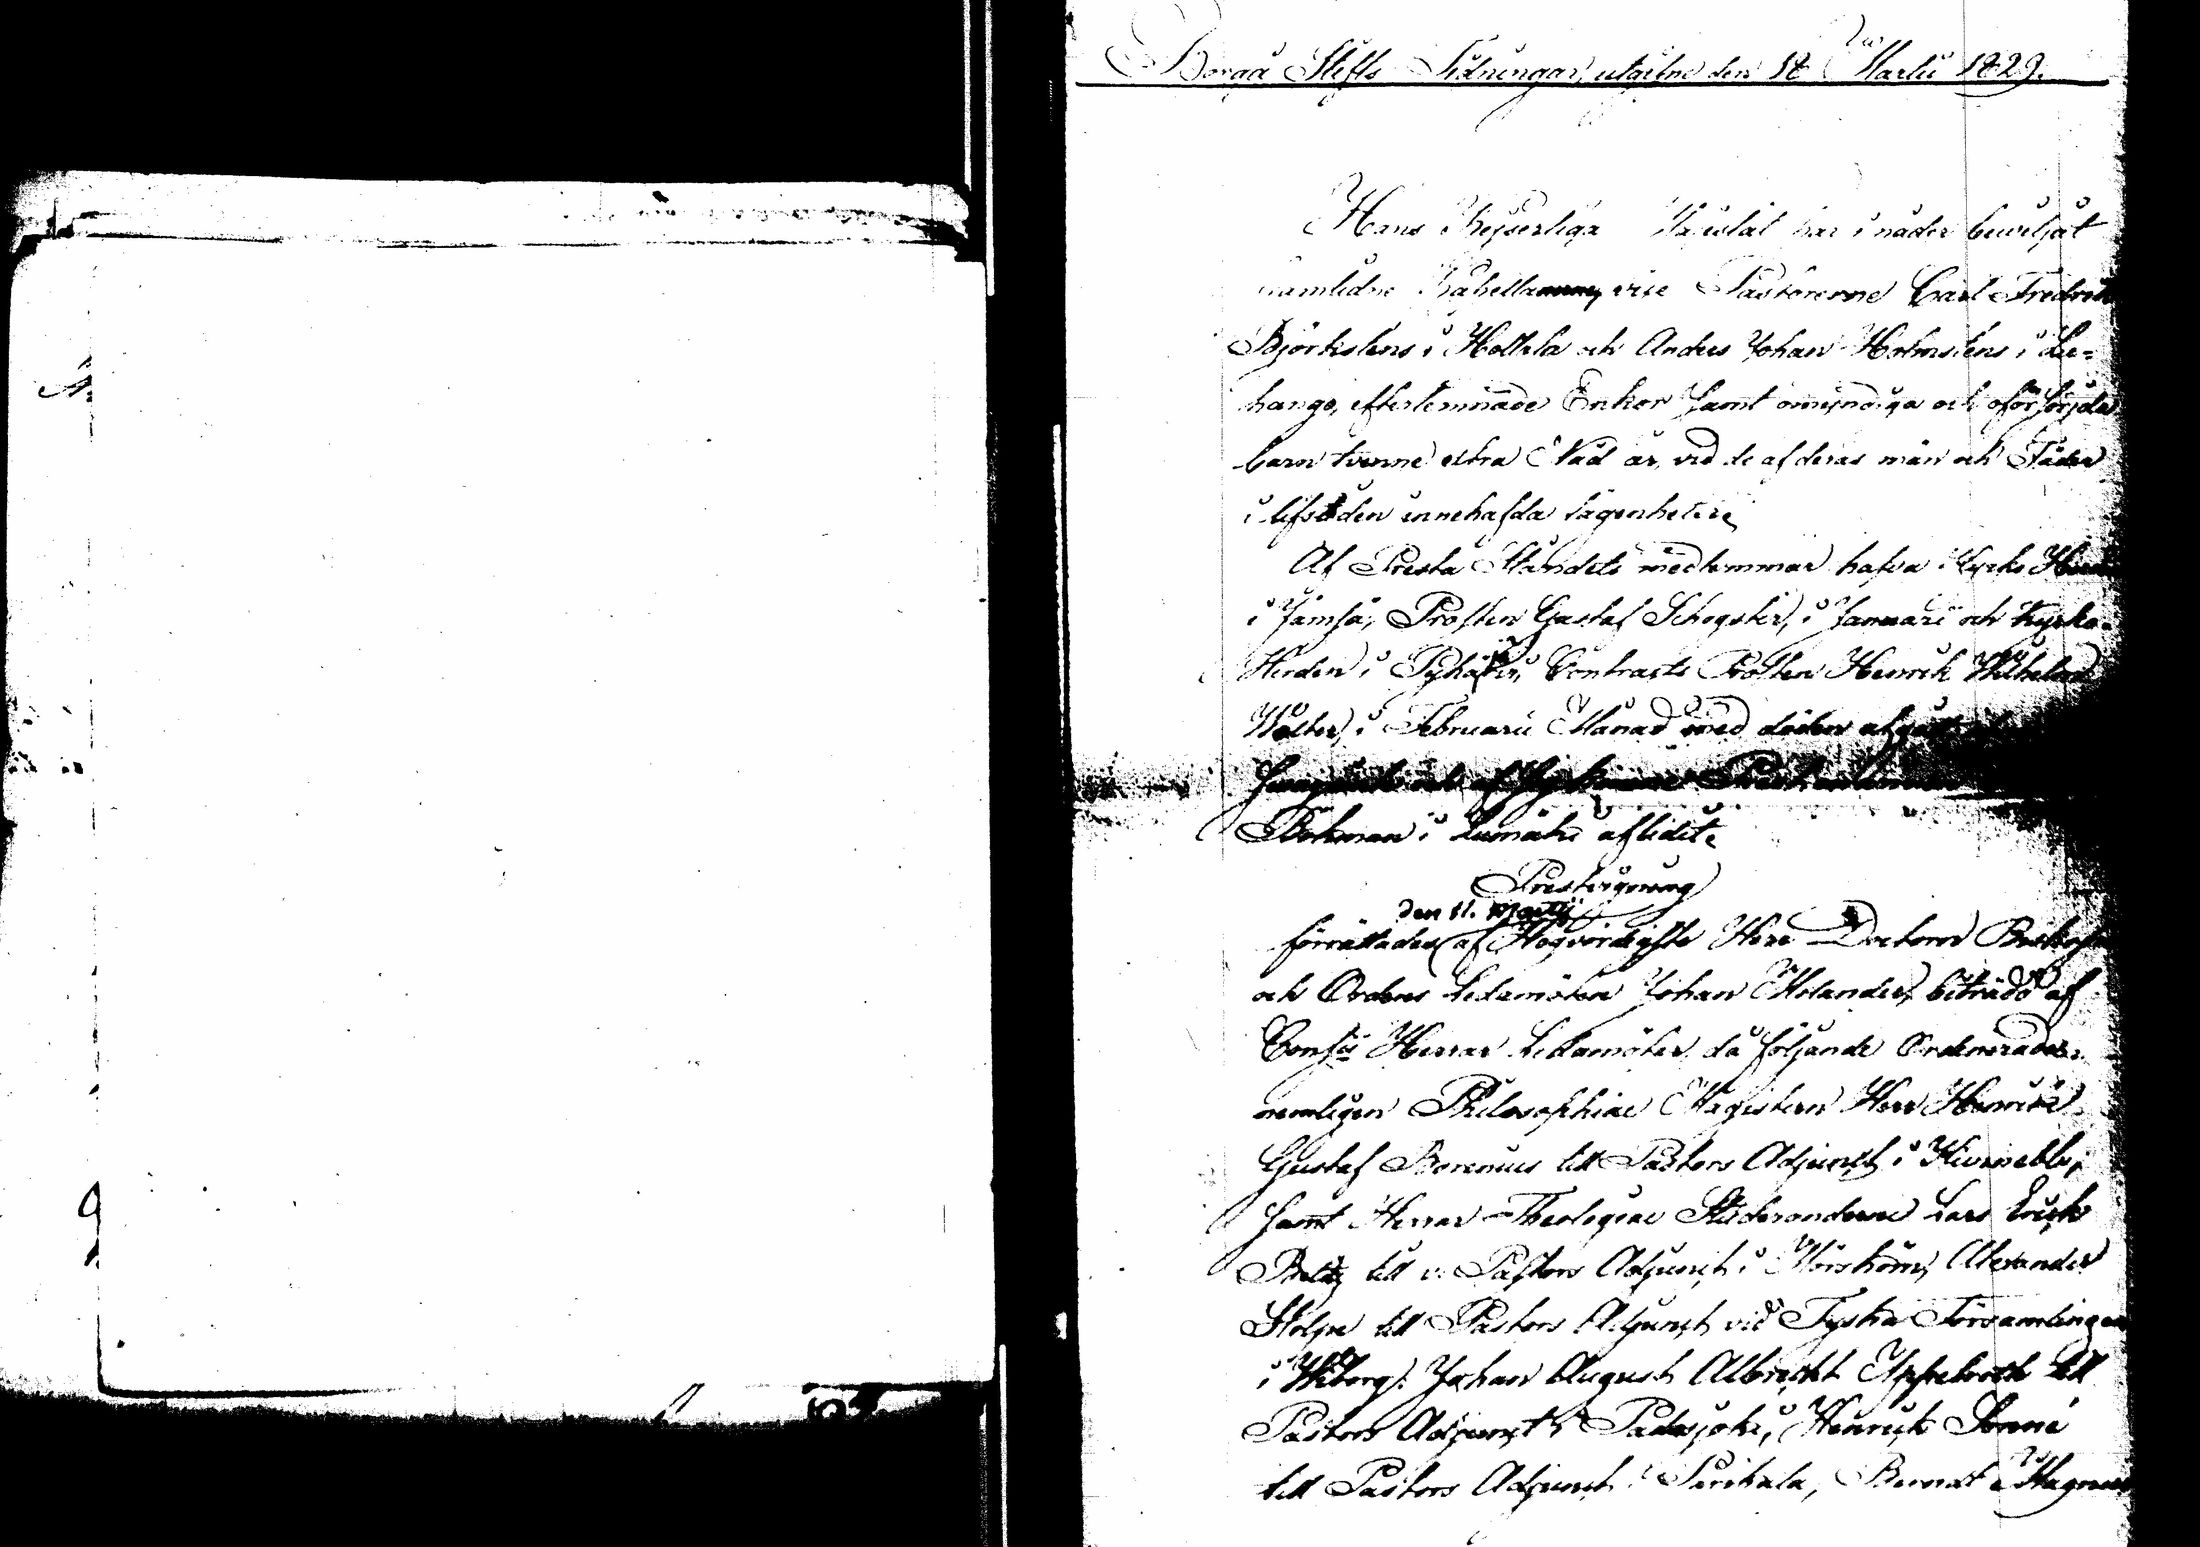 Borgå Stifts Tidningar, utgifne den 18 Martii 1829.
Hans Kejserliga Majestät har i nåder beviljat
framlidne vice Pastorerne Carl Fredrik
Björkstens i Hollola och Anders Johan Holmstens i Lie-
hange, efterlemnade Enkor samt omyndiga och oförsörjda
barn tvenne extra Nåd år, vid de af deras män och Fäder
i lifstiden innehafda lägenheter.
Af Presta Ståndets medlemmar hafva Kyrko Herden
i Jämsä, Prosten Gustaf Schogster, i Januari och Kyrko-
Herden i Contracts Prosten Henrik Wilhelm
Walter, i Februarii Månad med döden afgått
Bokman i Lumäki aflidit.
Prestvigning
den 11. Martii
förrättades af Högvördigste Herr Doctorn Biskopen
och Ordens Ledamoten Johan Molander, biträdd af
Consii Herrar Ledamöter, då följande Ordinerades
nemligen Philosophiae Magistern Herr Henric
Gustaf Borenius till Pastors Adjunct i Kivinebb,
samt Herrar Theologiae Studeranderne Lars Erick
till v. Pastors Adjunct i Mörskom, Alexander
Stolpe till Pastors Adjunct vid Tyska Församlingen
i Wiborg, Johan August Albrecht Appelroth till
Pastors Adjunct i Padasjoki, Henrick
till Pastors Adjunct i Parikala, Berndt Magnus